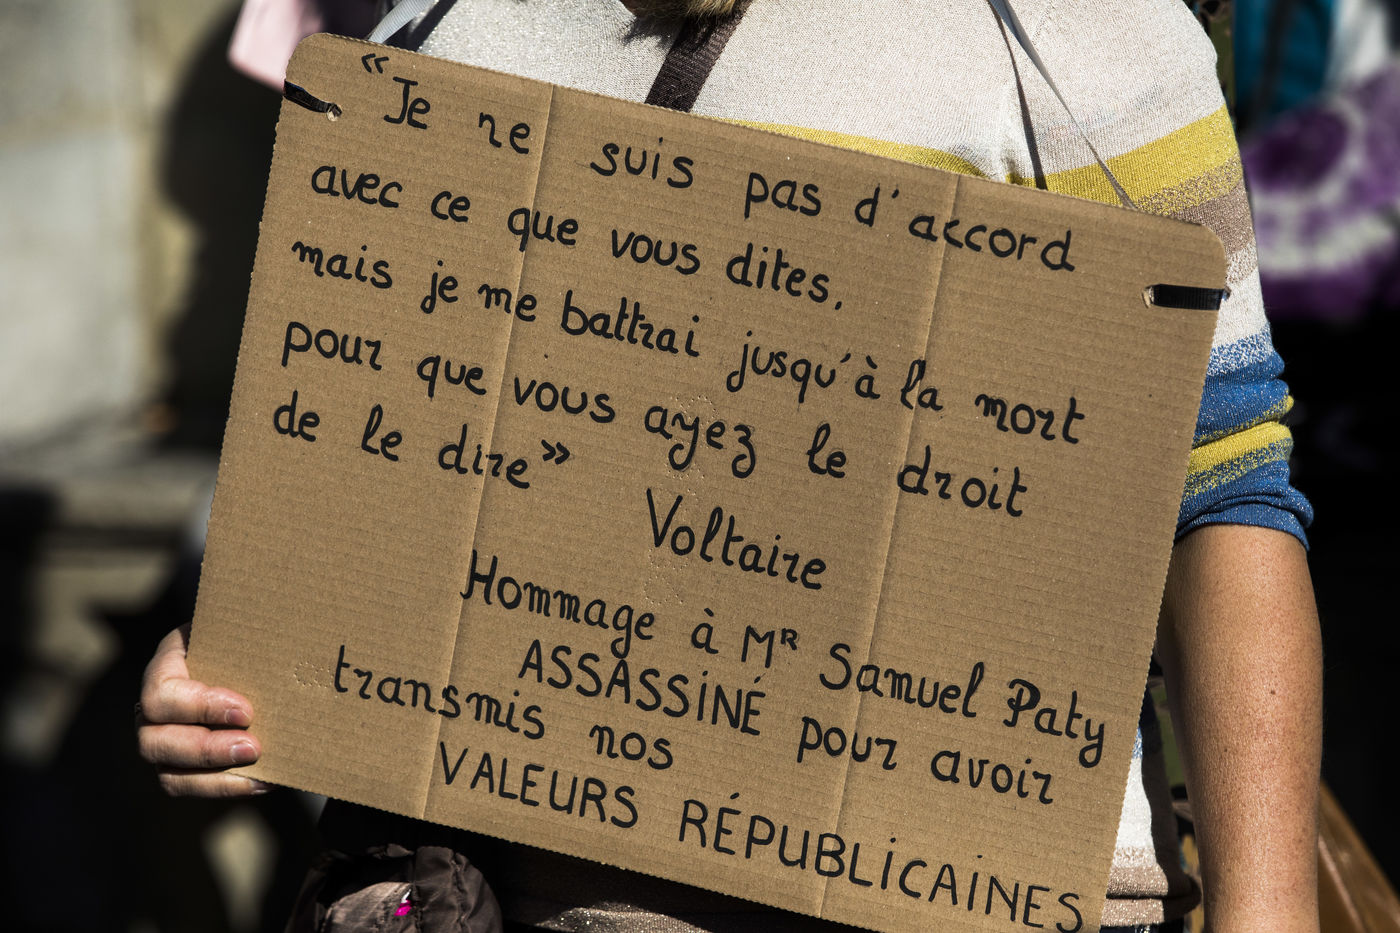 « Je ne suis pas d'accord
avec ce que vous dites,
mais je me battrai jusqu'à la mort
pour que vous ayez le droit
de le dire »
Voltaire
Hommage à MR Samuel Paty
ASSASSiNÉ pour avoir
transmis nos
VALEURS RÉPUBLiCAiNES